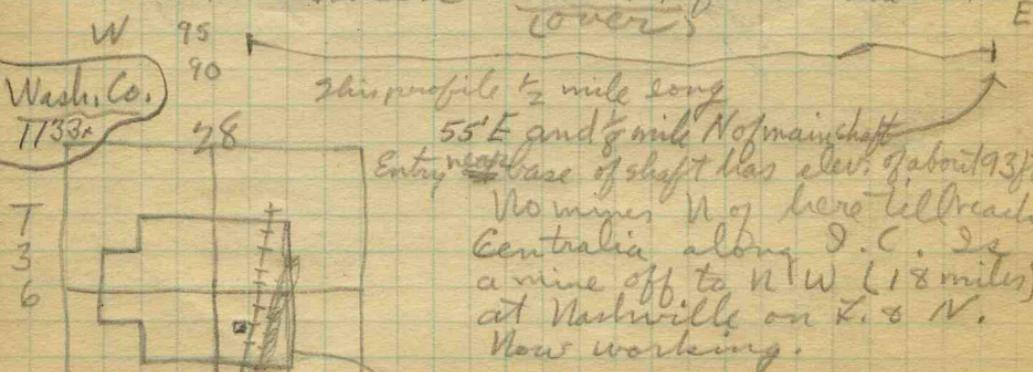 (over)
W 95 E
90
Wash. Co.
1133r
28
This profile ½ mile long
55' E and ⅛ mile N of main shaft
Entry near base of shaft has elev. of about 93 ft
No mines N of here till reach
Centralia along I.C. Is
a mine off to NW (18 miles)
at Nashville on L. & N.
Now working.
T
3
6